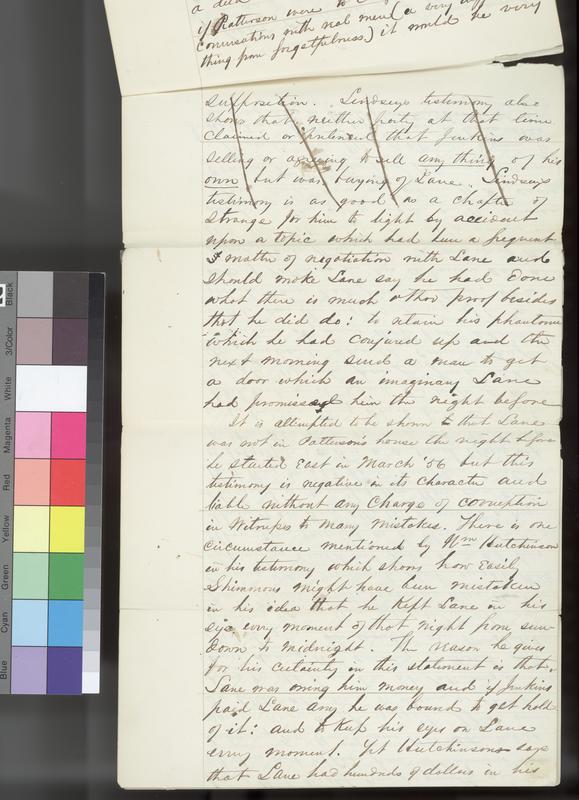 a deed
if Patterson were to
conversations with real men (a very
thing from forgetfulness) it would be very
supposition. Lindseys testimony also
shows that neither party at that time
claimed or pretenced that Jenkins was
selling or agreeing to sell any thing of his
own but was buying of Lane. Lindseys
testimony is as good as a chapter of
strange for him to light by accident
upon a topic which had been a frequent
matter of negotiation with Lane and
should make Lane say he had done
what there is much other proof besides
that he did do: to retain his phantom
which he had conjured up and the
next morning send a man to get
a door which an imaginary Lane
had promised him the night before
It is attempted to be shown that Lane
was not in Patterson's house the night before
he started East in March '56 but this
testimony is negative in its character and
liable without any charge of corruption
in Witness to many mistakes. There is one
circumstance mentioned by Wm Hutchinson
in his testimony which shows how easily
Shimmons might have been mistaken
in his idea that he kept Lane in his
eye every moment of that night from sun-
down to midnight. The reason he gives
for his certainty in this statement is that
Lane was owing him money and if Jenkins
paid Lane any he was bound to get hold
of it: and to keep his eyes on Lane
every moment. Yet Hutchinson says
that Lane had hundreds of dollars in his
Black
3/Color
White
Magenta
Red
Yellow
Green
Cyan
Blue